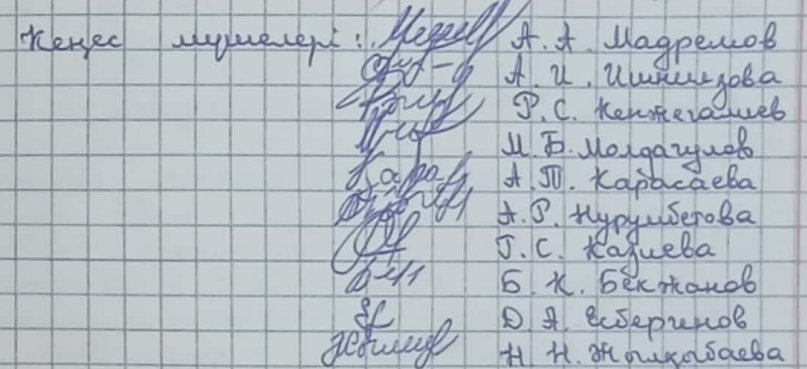 Кеңес мүшелері: А. А. Мадремов
А. И. Ишниязова
Р. С. Кенжегалиев
М. Б. Молдагулов
А. Т. Карасаева
А. Р. Нурумбетова
Г. С. Казиева
Б. К. Бекжанов
Д. А. Есбергенов
Н Н. Жылқыбаева